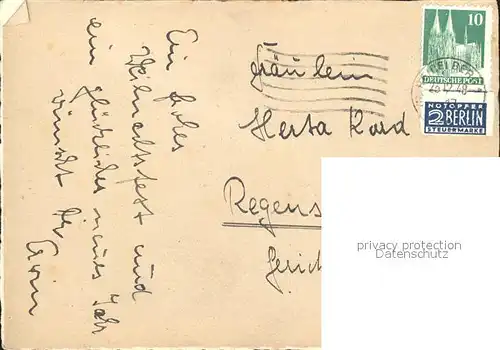 Ein frohes
Weihnachtsfest und
ein glückliches neues Jahr
wünscht Dir
Fräulein
Herta
Regens
Gerich
10
DEUTSCHE POST
NOTOPFER
2 BERLIN
STEUERMARKE
privacy protection
Datenschutz